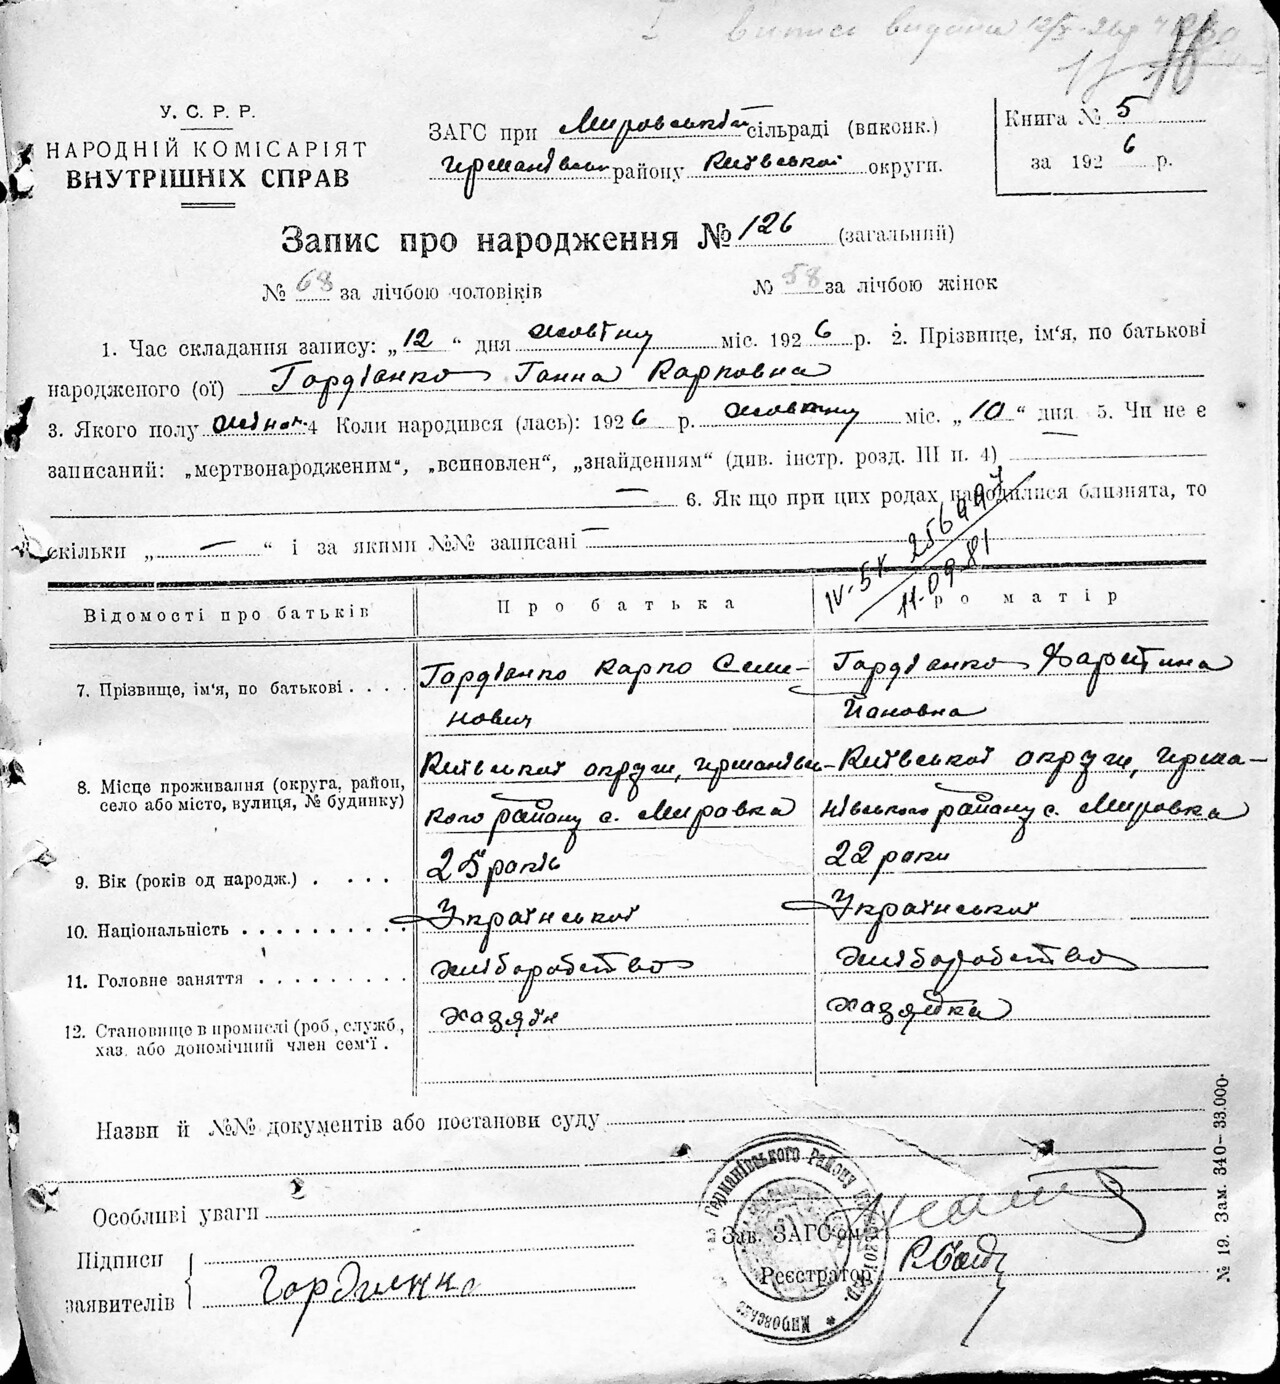 I випис видана 12/X-26р
У. С. Р. Р.
НАРОДНІЙ КОМІСАРІЯТ
ВНУТРІШНІХ СПРАВ
ЗАГС при Мировській сільраді (виконк.)
Германівськ. району Київської округи.
Книга № 5
за 1926 р.
Запис про народження № 126 (загальний)
№ 68 за лічбою чоловіків № 58 за лічбою жінок
1. Час складання запису: „12“ дня жовтну міс. 1926 р. 2. Прізвище, ім'я, по батькові
народженого (ої) Гордіэнко Ганна Карповна
3. Якого полу жіноч. 4 Коли народився (лась): 1926 р. жовтну міс. „10“ дня 5. Чи не є
записаний: „мертвонародженим“, „всиновлен“, „знайденням“ (див. інстр. розд. III п. 4) —
— 6. Як що при цих родах народилися близнята, то
скільки „ — “ і за якими №№ записані —
IV-БК 256997
11-09-81
Відомості про батьків Про батька Про матір
7. Прізвище, ім'я, по батькові . . . . Гордіэнко Карпо Семе- Гордіэнко Харитина
нович Йановна
8. Місце проживання (округа, район, село або місто, вулиця, № будинку) Київської округи, Германівсь- Київської округи, Герма-
кого району с. Мировка нівського району с. Мировка
9. Вік (років од народж.) . . . . 25 років 22 роки
10. Національність . . . . . . . . . . Української Української
11. Головне заняття . . . . . . . . . хліборобство хліборобство
12. Становище в промислі (роб, служб, хазяін хазяйка
хаз. або допомічний член сем'ї .
Назви й №№ документів або постанови суду
Особливі уваги
Підписи
заявителів Гордиенко
Зав. ЗАГС'ом
Реєстратор
Германівського Району
№ 19. Зам. 340–33.000.